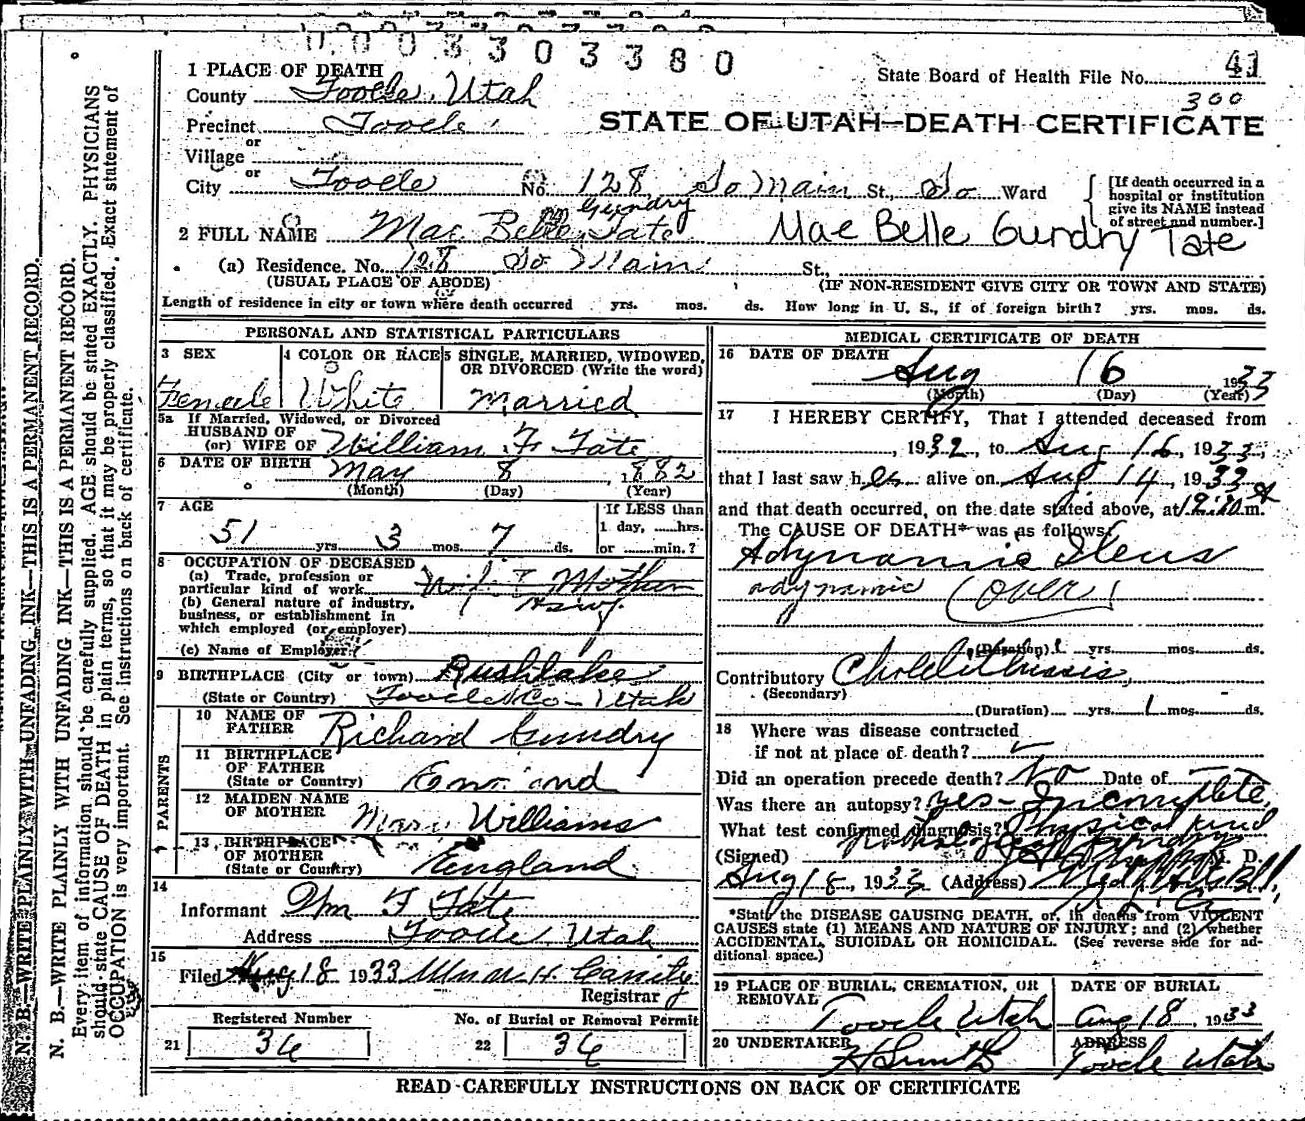 0003303380
41
1 PLACE OF DEATH
State Board of Health File No.
300
County Tooele, Utah
STATE OF UTAH—DEATH CERTIFICATE
Precinct Tooele
or
Village
or
City Tooele No. 128 So Main St., So Ward
[If death occurred in a hospital or institution give its NAME instead of street and number.]
Gundry
2 FULL NAME Mae Belle Tate Mae Belle Gundry Tate
(a) Residence. No. 128 So Main St.,
(USUAL PLACE OF ABODE) (IF NON-RESIDENT GIVE CITY OR TOWN AND STATE)
Length of residence in city or town where death occurred yrs. mos. ds. How long in U. S., if of foreign birth? yrs. mos. ds.
PERSONAL AND STATISTICAL PARTICULARS
3 SEX
Female
4 COLOR OR RACE
White
5 SINGLE, MARRIED, WIDOWED, OR DIVORCED (Write the word)
Married
5a If Married, Widowed, or Divorced
HUSBAND OF
(or) WIFE OF William F Tate
6 DATE OF BIRTH May 8, 1882
(Month) (Day) (Year)
7 AGE
51 yrs. 3 mos. 7 ds.
If LESS than
1 day, hrs.
or min.?
8 OCCUPATION OF DECEASED
(a) Trade, profession or
particular kind of work Mother
(b) General nature of industry,
business, or establishment in
which employed (or employer)
(c) Name of Employer
9 BIRTHPLACE (City or town) Rushlake
(State or Country) Tooele Co - Utah
PARENTS
10 NAME OF
FATHER Richard Gundry
11 BIRTHPLACE
OF FATHER
(State or Country) England
12 MAIDEN NAME
OF MOTHER Mary Williams
13 BIRTHPLACE
OF MOTHER
(State or Country) England
14
Informant Wm F Tate
Address Tooele, Utah
15
Filed Aug 18 1933
Registrar
Registered Number
21 36
No. of Burial or Removal Permit
22 36
MEDICAL CERTIFICATE OF DEATH
16 DATE OF DEATH
Aug 16 1933
(Month) (Day) (Year)
17 I HEREBY CERTIFY, That I attended deceased from
, 1932, to Aug 16, 1933,
that I last saw her alive on Aug 14, 1933
and that death occurred, on the date stated above, at 12:20 A m.
The CAUSE OF DEATH* was as follows:
Adynamic Ileus
adynamic (over)
(Duration) yrs. mos. ds.
Contributory Cholelithiasis,
(Secondary)
(Duration) yrs. 1 mos. ds.
18 Where was disease contracted
if not at place of death?
Did an operation precede death? No Date of
Was there an autopsy? yes - Incomplete,
What test confirmed diagnosis? Physical and
(Signed) M. D.
Aug 18, 1933 (Address)
*State the DISEASE CAUSING DEATH, or, in deaths from VIOLENT
CAUSES state (1) MEANS AND NATURE OF INJURY; and (2) whether
ACCIDENTAL, SUICIDAL OR HOMICIDAL. (See reverse side for ad-
ditional space.)
19 PLACE OF BURIAL, CREMATION, OR
REMOVAL Tooele Utah
DATE OF BURIAL
Aug 18, 1933
20 UNDERTAKER
H Smith
ADDRESS
Tooele Utah
READ CAREFULLY INSTRUCTIONS ON BACK OF CERTIFICATE
N. B.—WRITE PLAINLY WITH UNFADING INK—THIS IS A PERMANENT RECORD.
N. B.—WRITE PLAINLY WITH UNFADING INK—THIS IS A PERMANENT RECORD.
Every item of information should be carefully supplied. AGE should be stated EXACTLY. PHYSICIANS
should state CAUSE OF DEATH in plain terms, so that it may be properly classified. Exact statement of
OCCUPATION is very important. See instructions on back of certificate.